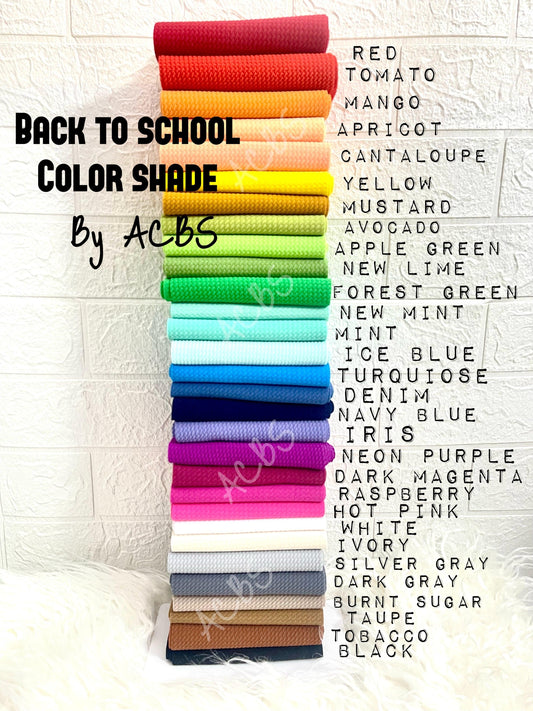 BACK TO SCHOOL
COLOR SHADE
By ACBS
RED
TOMATO
MANGO
APRICOT
CANTALOUPE
YELLOW
MUSTARD
AVOCADO
APPLE GREEN
NEW LIME
FOREST GREEN
NEW MINT
MINT
ICE BLUE
TURQUIOSE
DENIM
NAVY BLUE
IRIS
NEON PURPLE
DARK MAGENTA
RASPBERRY
HOT PINK
WHITE
IVORY
SILVER GRAY
DARK GRAY
BURNT SUGAR
TAUPE
TOBACCO
BLACK
ACBS
ACBS
ACBS
ACBS
ACBS